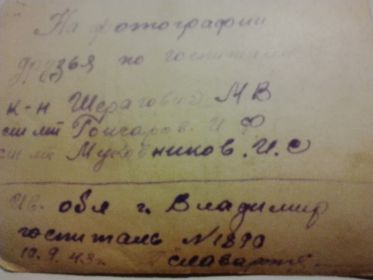 На фотографии
друзья по госпиталю
к-н Шерагович МВ
ст лт Гончаров. И Ф
ст лт Муковников. И. С
Ив. обл г. Владимир
госпиталь N 1890
10.9.43г.